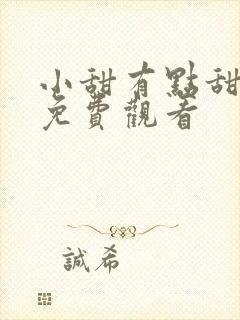 小甜有點甜
免費觀看
誠希